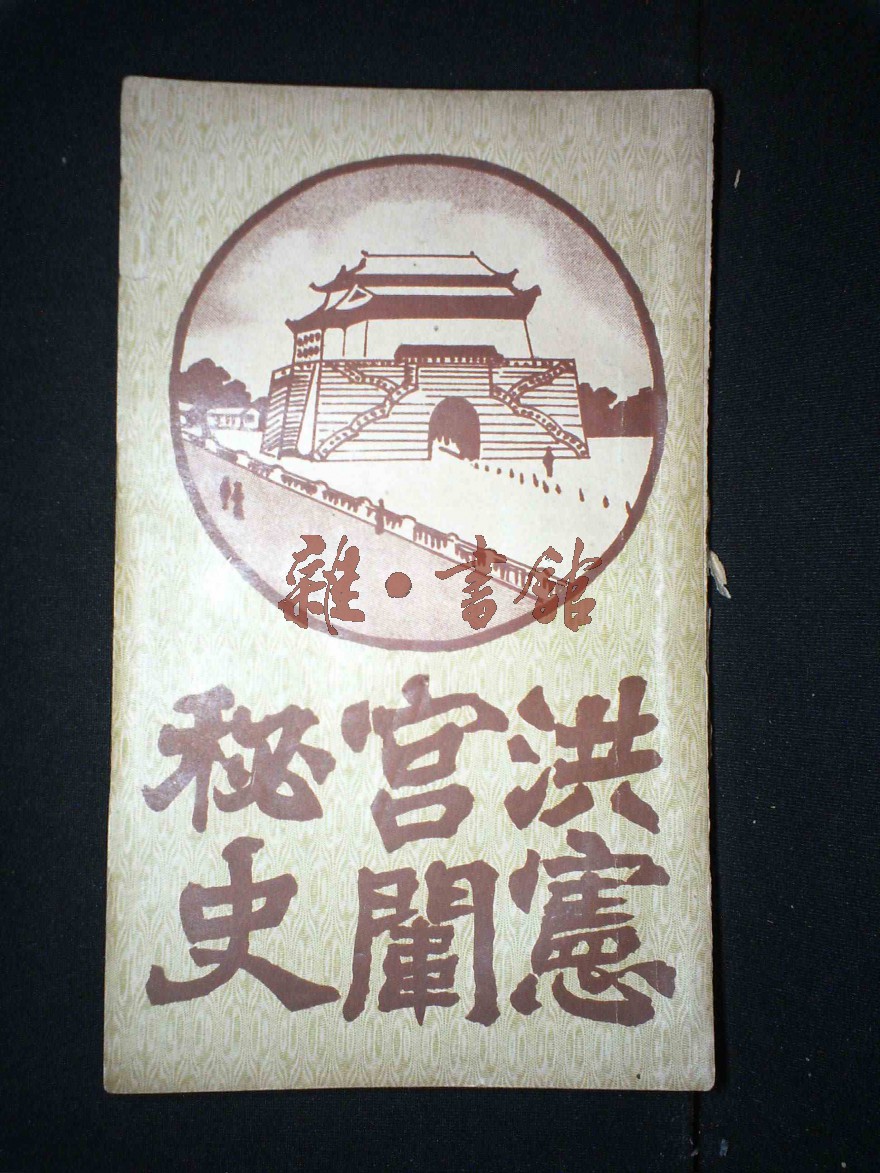 雜·書館
洪憲
宮闈
秘史